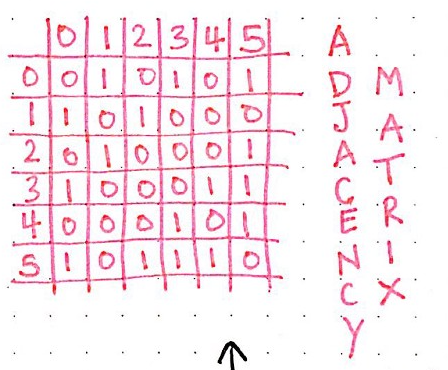 0 1 2 3 4 5
0 0 1 0 1 0 1
1 1 0 1 0 0 0
2 0 1 0 0 0 1
3 1 0 0 0 1 1
4 0 0 0 1 0 1
5 1 0 1 1 1 0
ADJACENCY
MATRIX